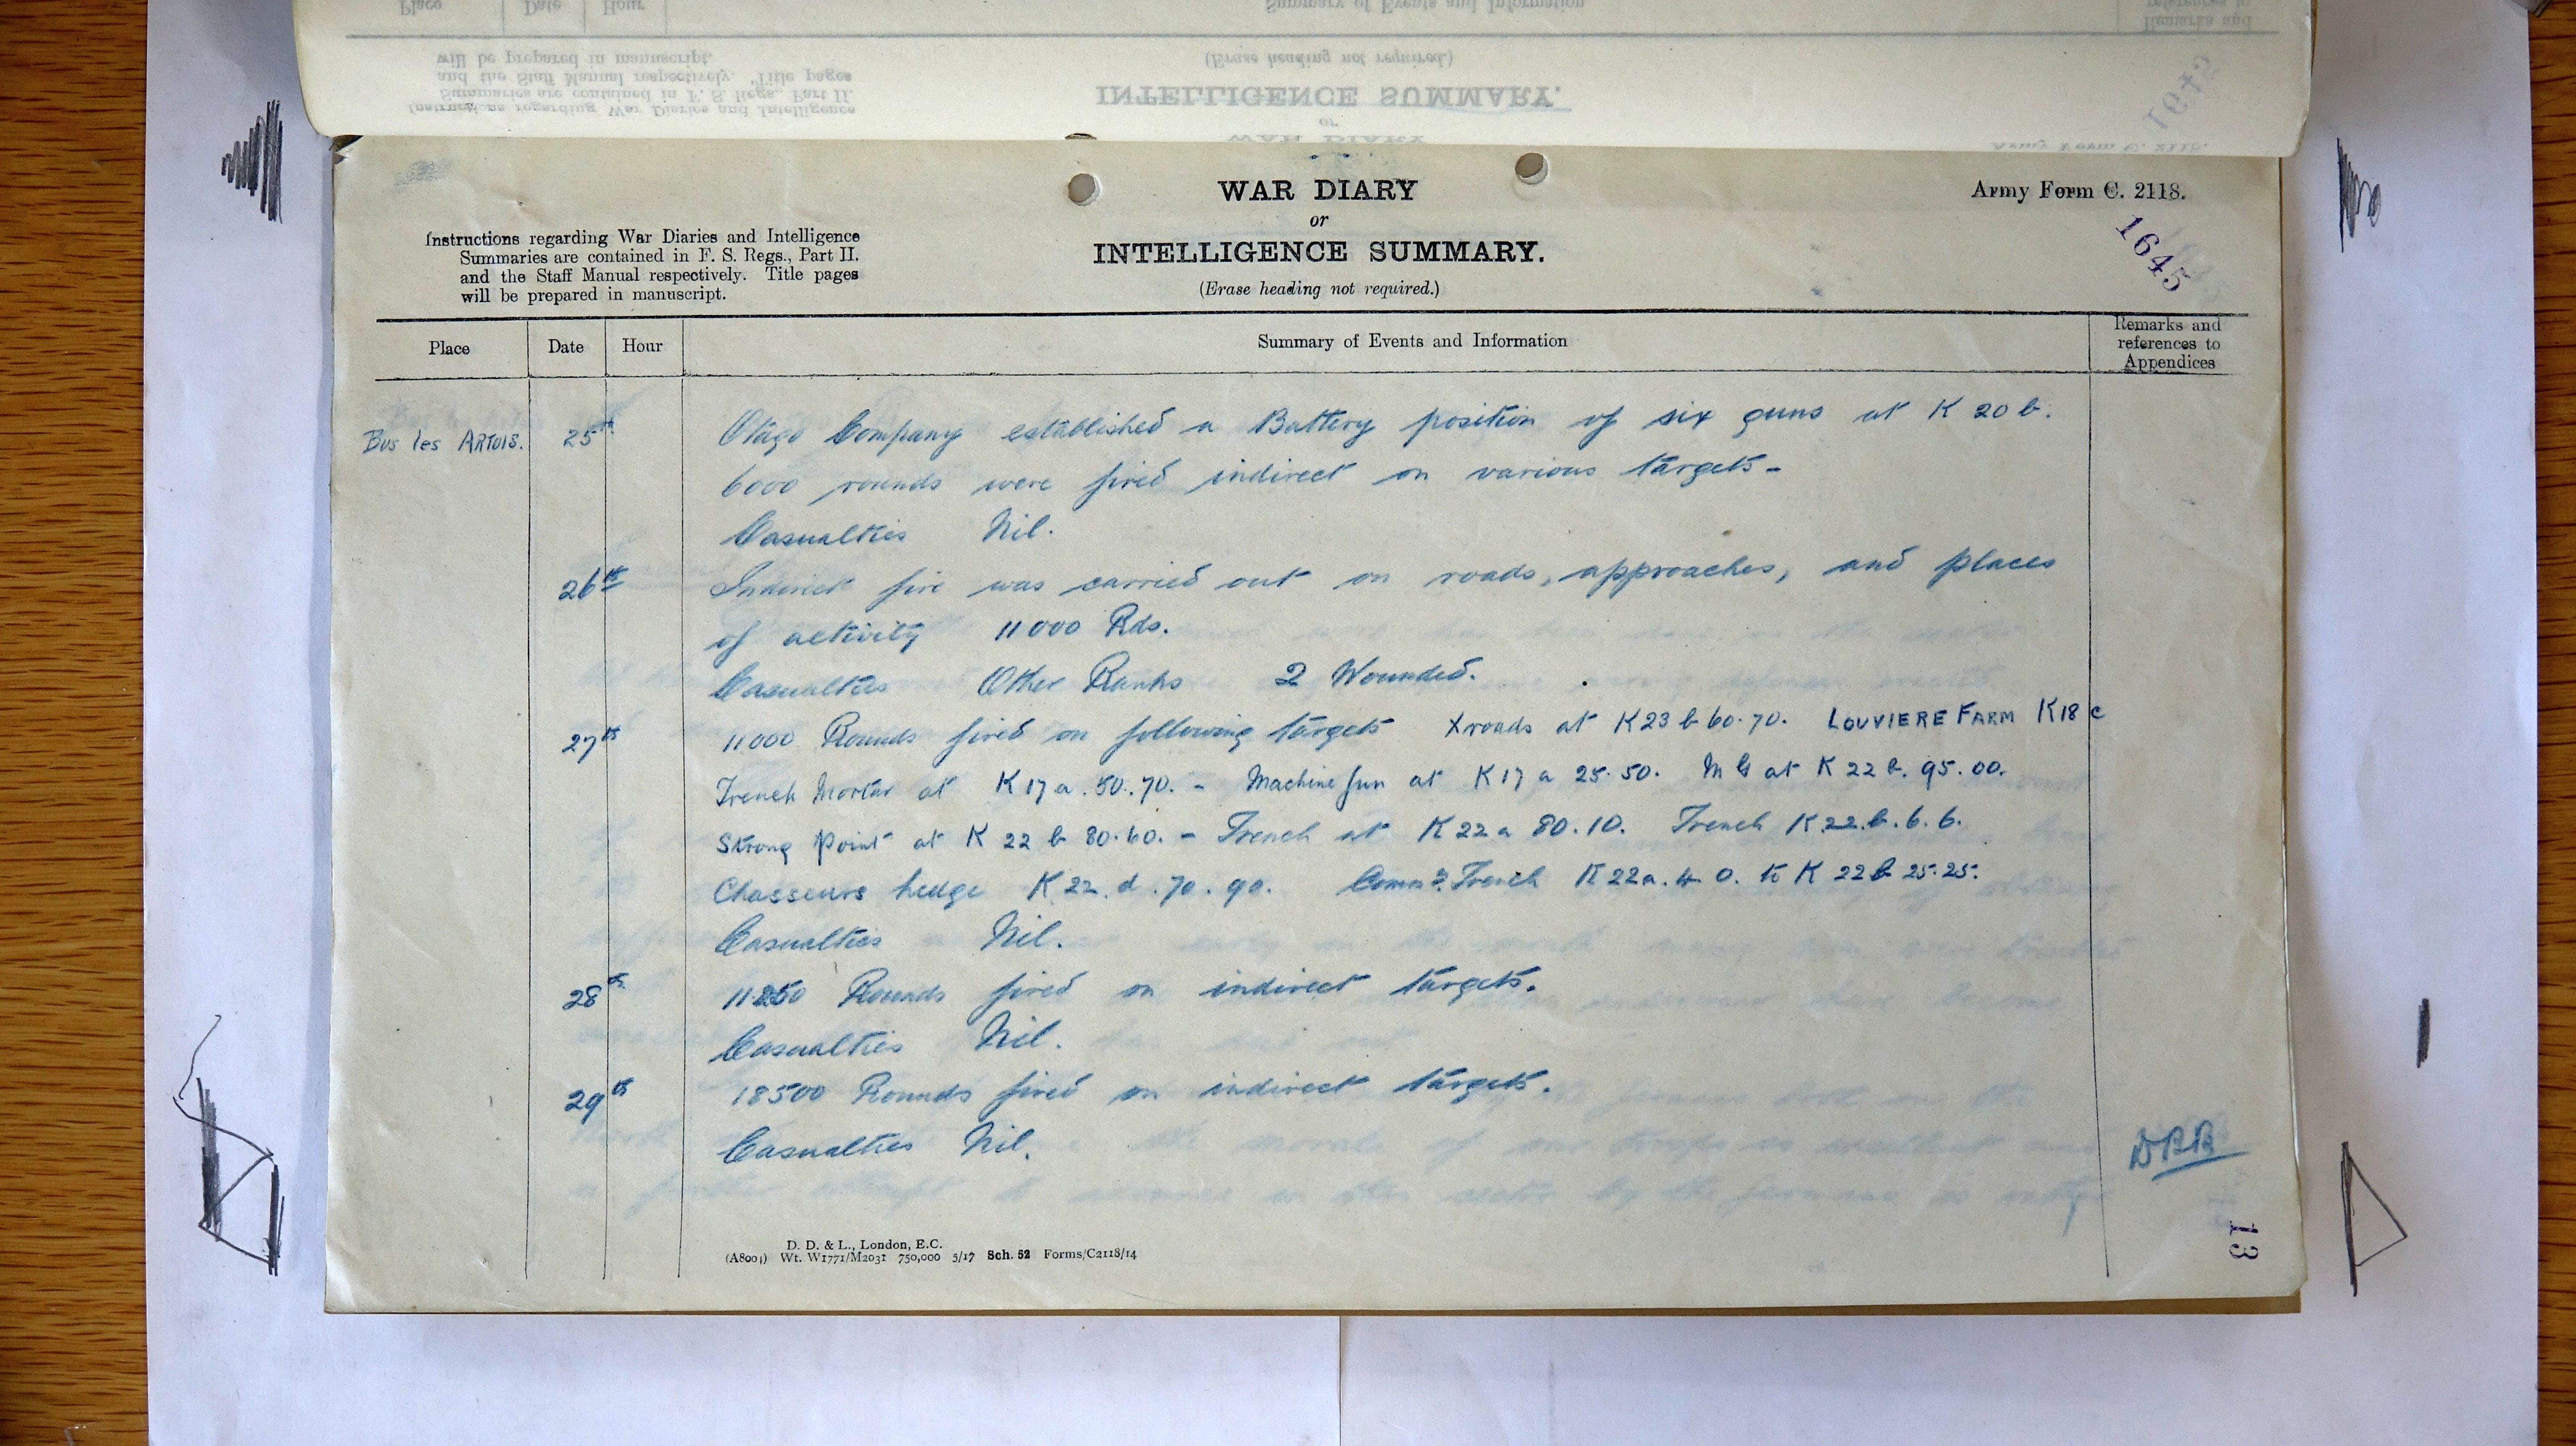 WAR DIARY
or
INTELLIGENCE SUMMARY.
(Erase heading not required.)
Army Form C. 2118.
1645
Instructions regarding War Diaries and Intelligence
Summaries are contained in F. S. Regs., Part II.
and the Staff Manual respectively. Title pages
will be prepared in manuscript.
Place Date Hour Summary of Events and Information Remarks and
references to
Appendices
Bus les ARTOIS. 25th Otago Company established a Battery position of six guns at K 20 b.
6000 rounds were fired indirect on various targets-
Casualties Nil.
26th Indirect fire was carried out on roads, approaches, and places
of activity 11000 Rds.
Casualties Other Ranks 2 Wounded.
27th 11000 Rounds fired on following targets Xroads at K23 b 60.70. LOUVIERE FARM K18 c
Trench Mortar at K17a.50.70. - Machine Gun at K17 a 25.50. M G at K 22 b. 95.00.
Strong Point at K 22 b 80.60. - Trench at K22a 80.10. Trench K.22.b.6.6.
Chasseurs hedge K22.d.70.90. Comn. Trench K22a.4 0. to K 22b 25.25.
Casualties Nil.
28th 11250 Rounds fired on indirect targets.
Casualties Nil.
29th 18500 Rounds fired on indirect targets.
Casualties Nil.
13
D. D. & L., London, E.C.
(A8001) Wt. W1771/M2031 750,000 5/17 Sch. 52 Forms/C2118/14